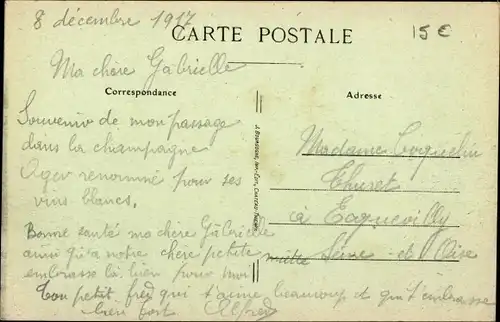 8 décembre 1917
15€
CARTE POSTALE
Ma chère Gabrielle
Correspondance
Adresse
Souvenir de mon passage
dans la champagne
Ager renommé pour ses
vins blancs.
Bonne santé ma chère Gabrielle
ainsi qu'à notre chère petite
embrasse là bien pour moi
Ton petit fred qui t'aime beaucoup et qui t'embrasse
bien fort Alfred
Madame Coquelin
Thuret
à Ecquevilly
Seine - et Oise